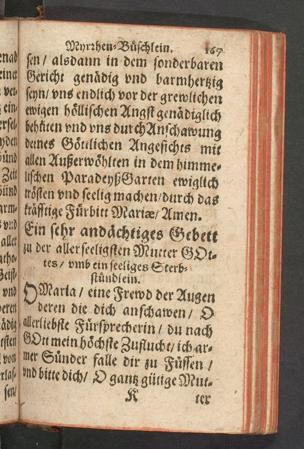 Myrrhen-Büschlein. 167
sen / alsdann in dem sonderbaren
Gericht genädig vnd barmhertzig
seyn / vns endlich vor der grewlichen
ewigen höllischen Angst genädiglich
behüten vnd vns durch Anschawung
deines Göttlichen Angesichts mit
allen Außerwöhlten in dem himme-
lischen ParadeyßGarten ewiglich
trösten vnd seelig machen / durch das
kräfftige Fürbitt Mariæ / Amen.
Ein sehr andächtiges Gebett
zu der allerseeligsten Mutter GOt-
tes / vmb ein seeliges Sterb-
stündlein.
O Maria / eine Frewd der Augen
deren die dich anschawen / O
allerliebste Fürsprecherin / du nach
GOtt mein höchste Zuflucht / ich ar-
mer Sünder falle dir zu Füssen /
vnd bitte dich / O gantz gütige Mut-
K ter